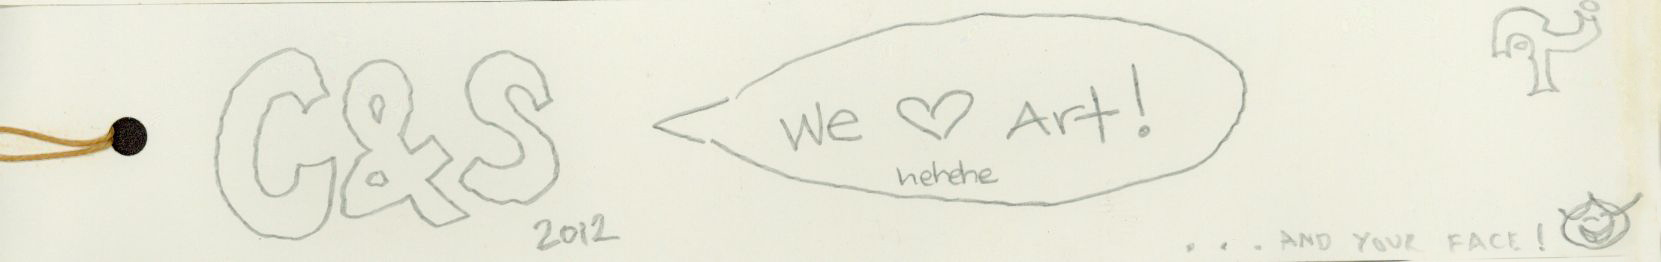 C&S
2012
We ♡ Art!
hehehe
... AND YOUR FACE!